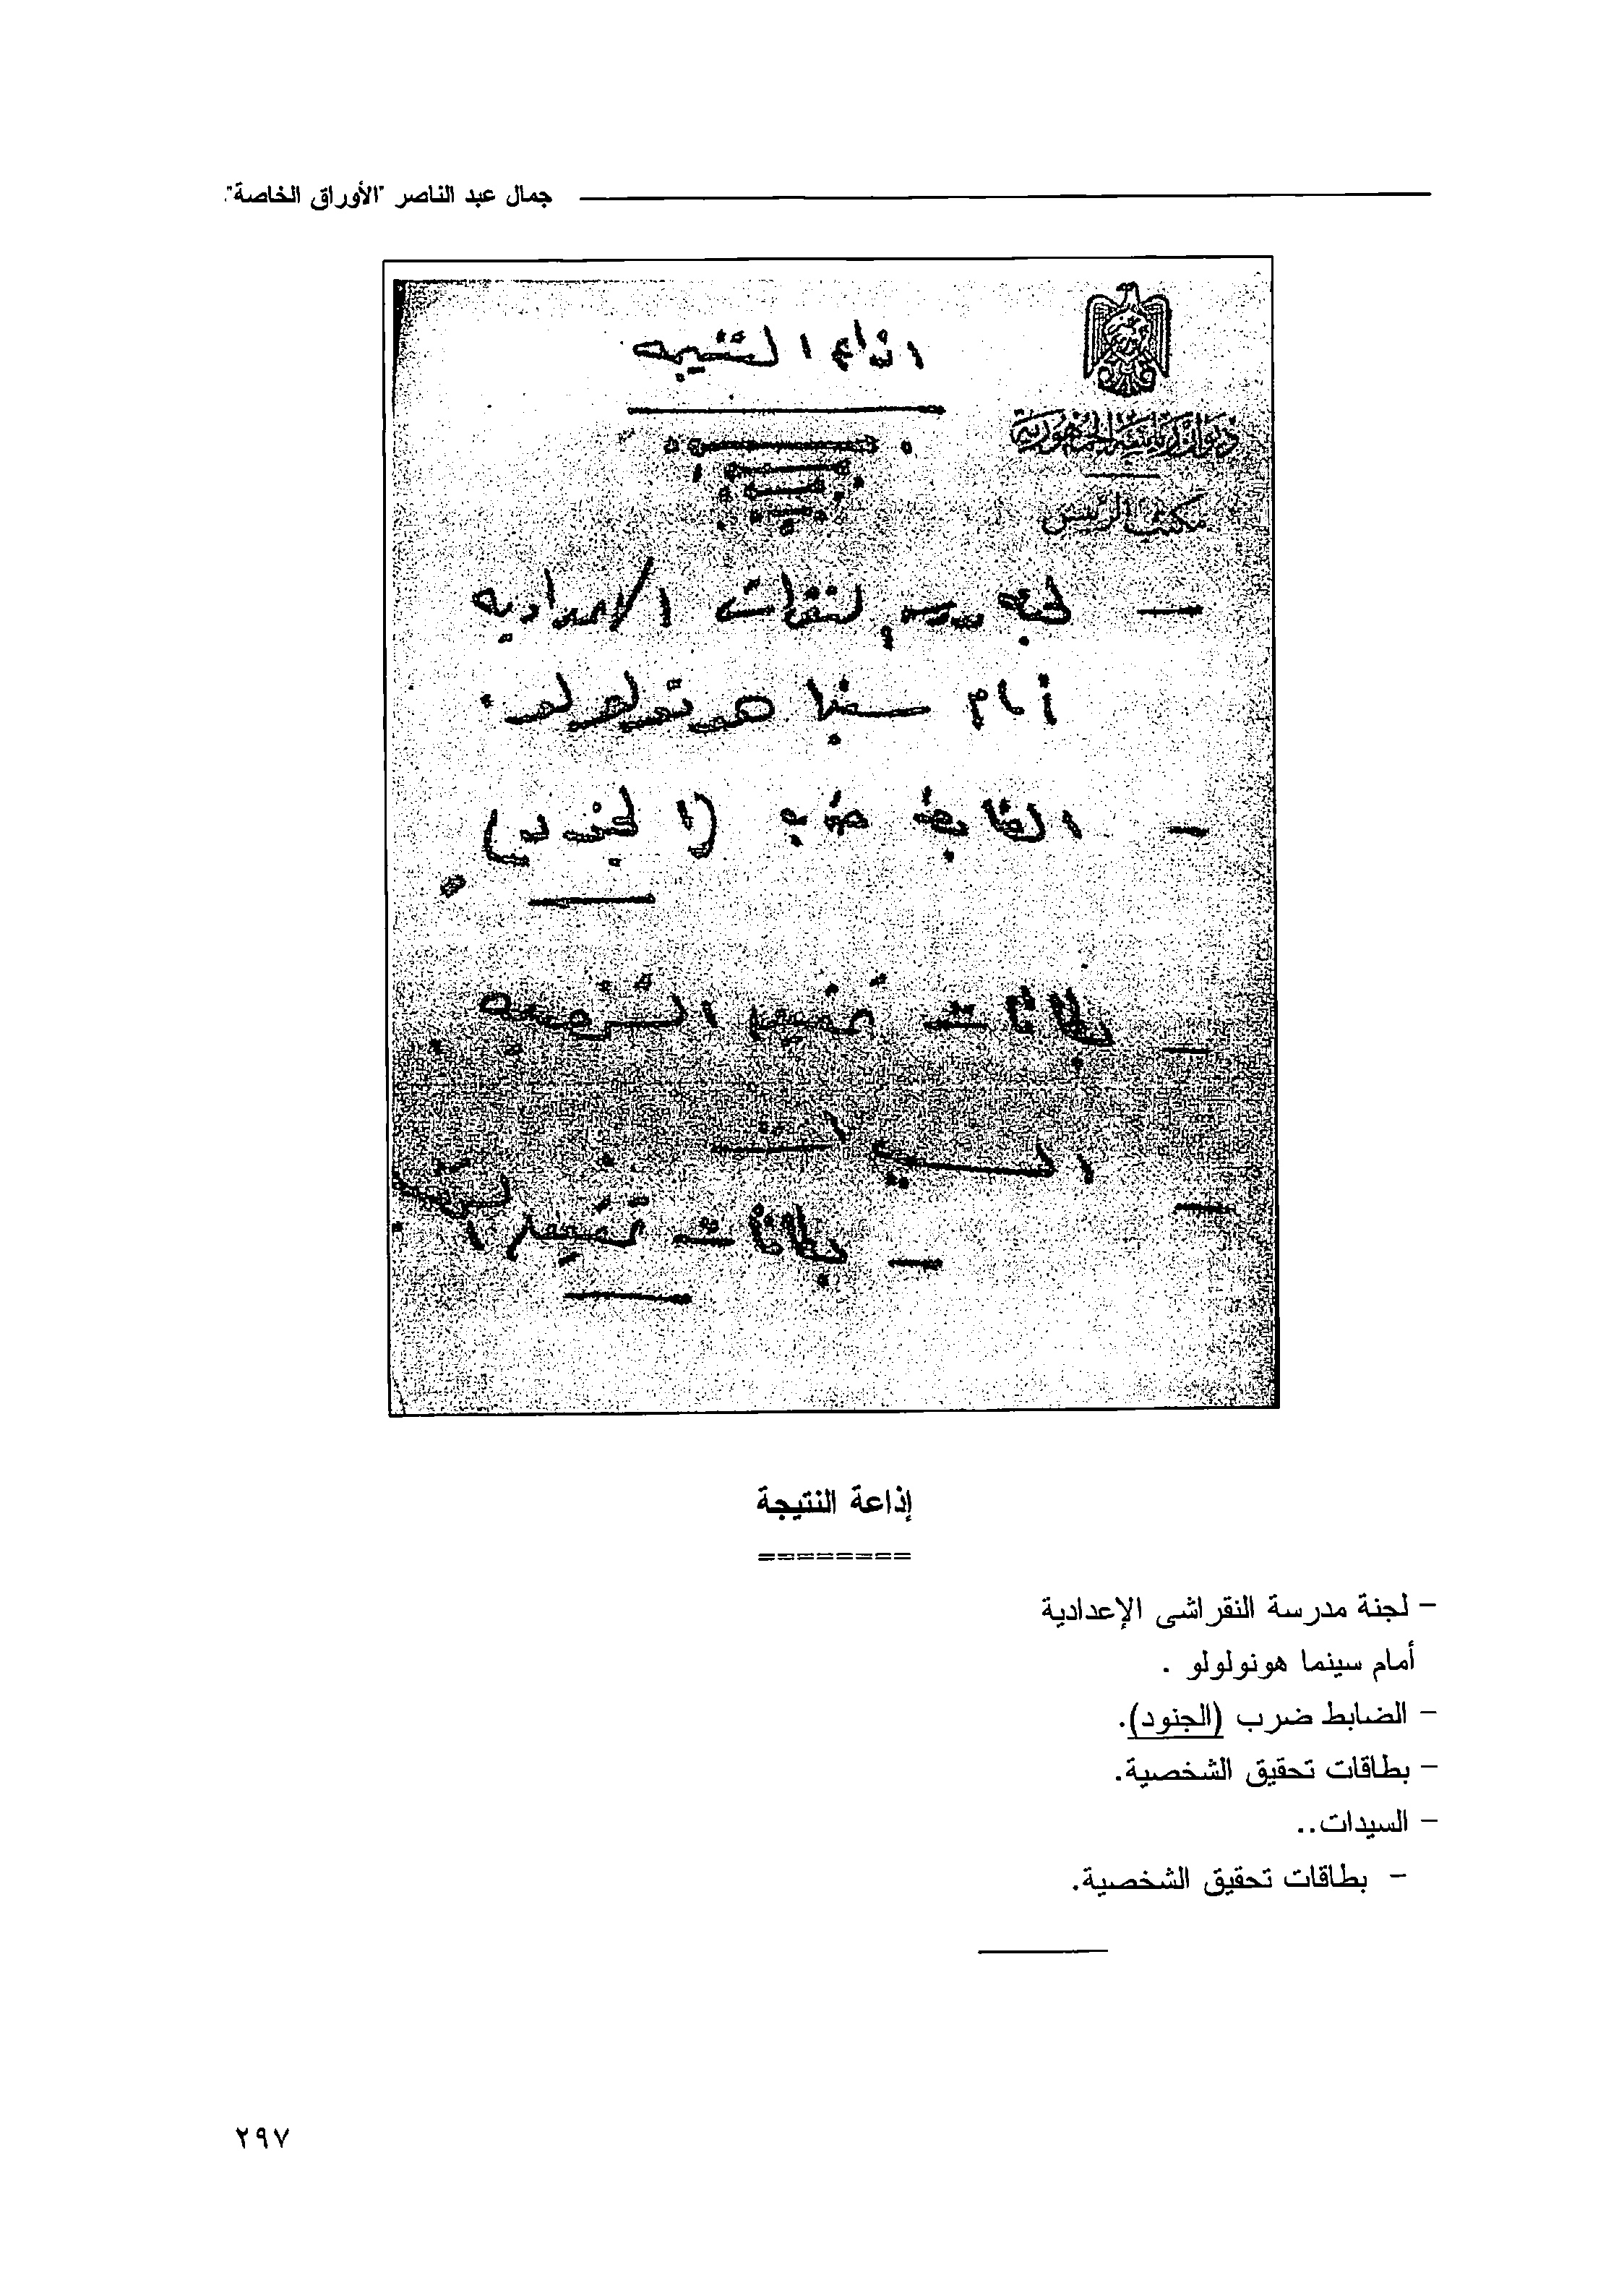 جمال عبد الناصر "الأوراق الخاصة".
ديوان رئيس الجمهورية
مكتب الرئيس
اذاعه النتيجه
— لجنه مدرسه النقراشى الإعداديه
أمام سينما هونولولو .
— الضابط ضرب (الجنود) .
— بطاقات تحقيق الشخصيه .
— السيدات
— بطاقات تحقيق
إذاعة النتيجة
========
– لجنة مدرسة النقراشى الإعدادية
أمام سينما هونولولو .
– الضابط ضرب (الجنود).
– بطاقات تحقيق الشخصية.
– السيدات..
– بطاقات تحقيق الشخصية.
٢٩٧